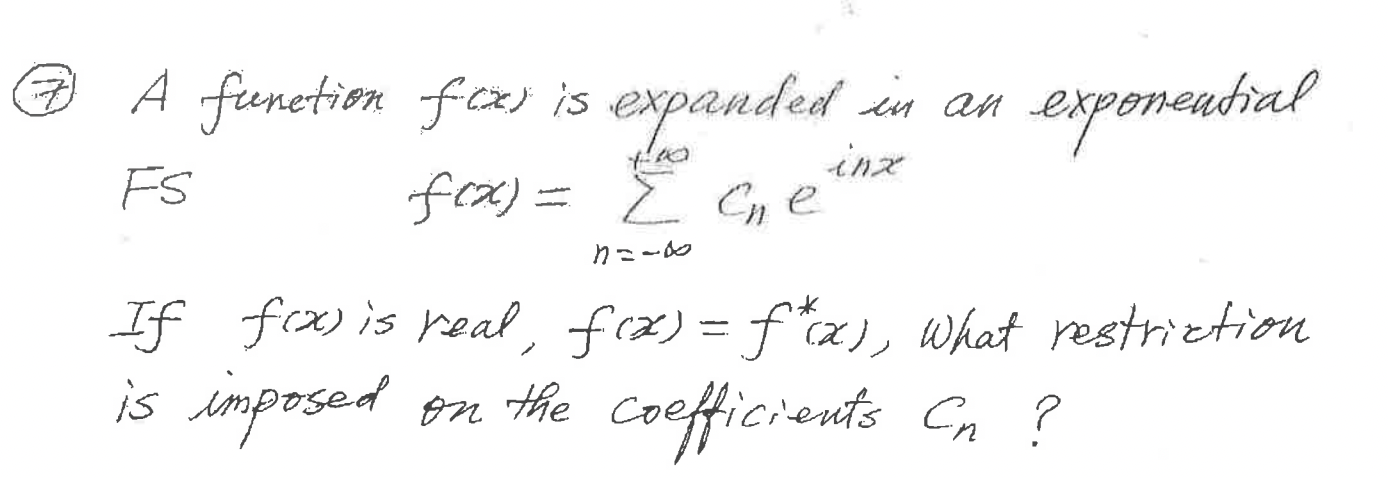 ⑦ A function f(x) is expanded in an exponential
FS f(x) = \sum_{n=-∞}^{+∞} C_n e^{inx}
If f(x) is real, f(x) = f^*(x), What restriction
is imposed on the coefficients C_n ?